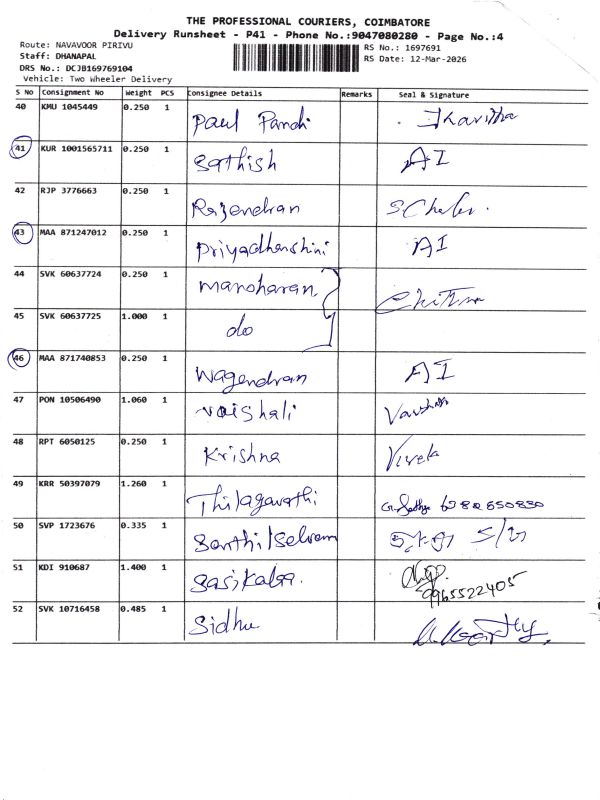 THE PROFESSIONAL COURIERS, COIMBATORE
Delivery Runsheet - P41 - Phone No.:9047080280 - Page No.:4
Route: NAVAVOOR PIRIVU
Staff: DHANAPAL
DRS No.: DCJB169769104
Vehicle: Two Wheeler Delivery
RS No.: 1697691
RS Date: 12-Mar-2026
S No Consignment No Weight PCS Consignee Details Remarks Seal & Signature
40 KMU 1045449 0.250 1 Paul Pandi
41 KUR 1001565711 0.250 1 Sathish AI
42 RJP 3776663 0.250 1 Rajendran
43 MAA 871247012 0.250 1 Priyadharshini AI
44 SVK 60637724 0.250 1 manoharan
45 SVK 60637725 1.000 1 do
46 MAA 871740853 0.250 1 Nagendran AI
47 PON 10506490 1.060 1 Vaishali
48 RPT 6050125 0.250 1 Krishna
49 KRR 50397079 1.260 1 Thilagavathi
50 SVP 1723676 0.335 1 Senthilselvam
51 KDI 910687 1.400 1 Sasikala 9965522405
52 SVK 10716458 0.485 1 Sidhu